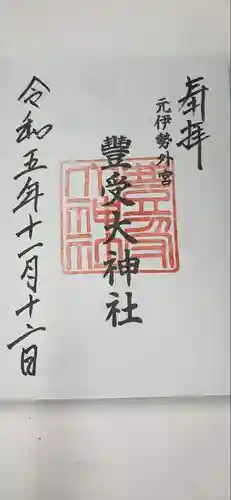 奉拝
元伊勢外宮
豐受大神社
令和五年十一月十二日